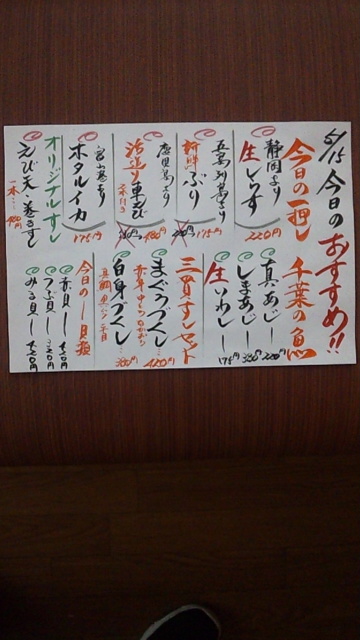 5/15 今日のおすすめ!!
今日の一押し
静岡より
生しらす
220円
五島列島より
新鮮ぶり
175円
鹿児島より
活〆り車えび
480円
富山産より
ホタルイカ
175円
オリジナルすし
えび天巻ずし
一本…480円
千葉の魚
真あじー220円
しまあじー380円
生いわしー175円
三貫すしセット
まぐろづくし
420円
白身づくし…
380円
今日の貝類
赤貝ー420円
つぶ貝ー320円
みる貝ー420円